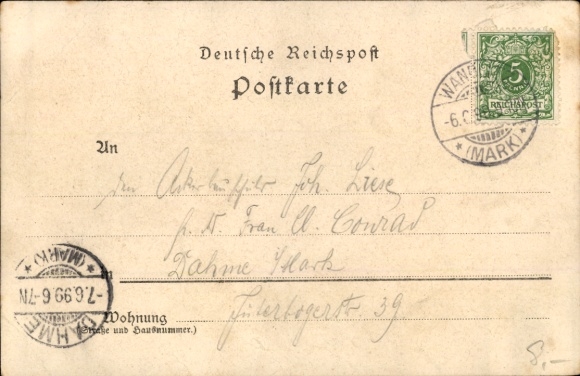 Deutsche Reichspost
Postkarte
5
REICHSPOST
WAN
-6.
*(MARK)*
An
den Ackerbauschüler Joh. Liese
p. A. Frau A. Conrad
in Dahme /Mark
Jüterbogerstr. 39
Wohnung
(Straße und Hausnummer.)
DAHME
-7.6.99 6-7N
*(MARK)*
8,-